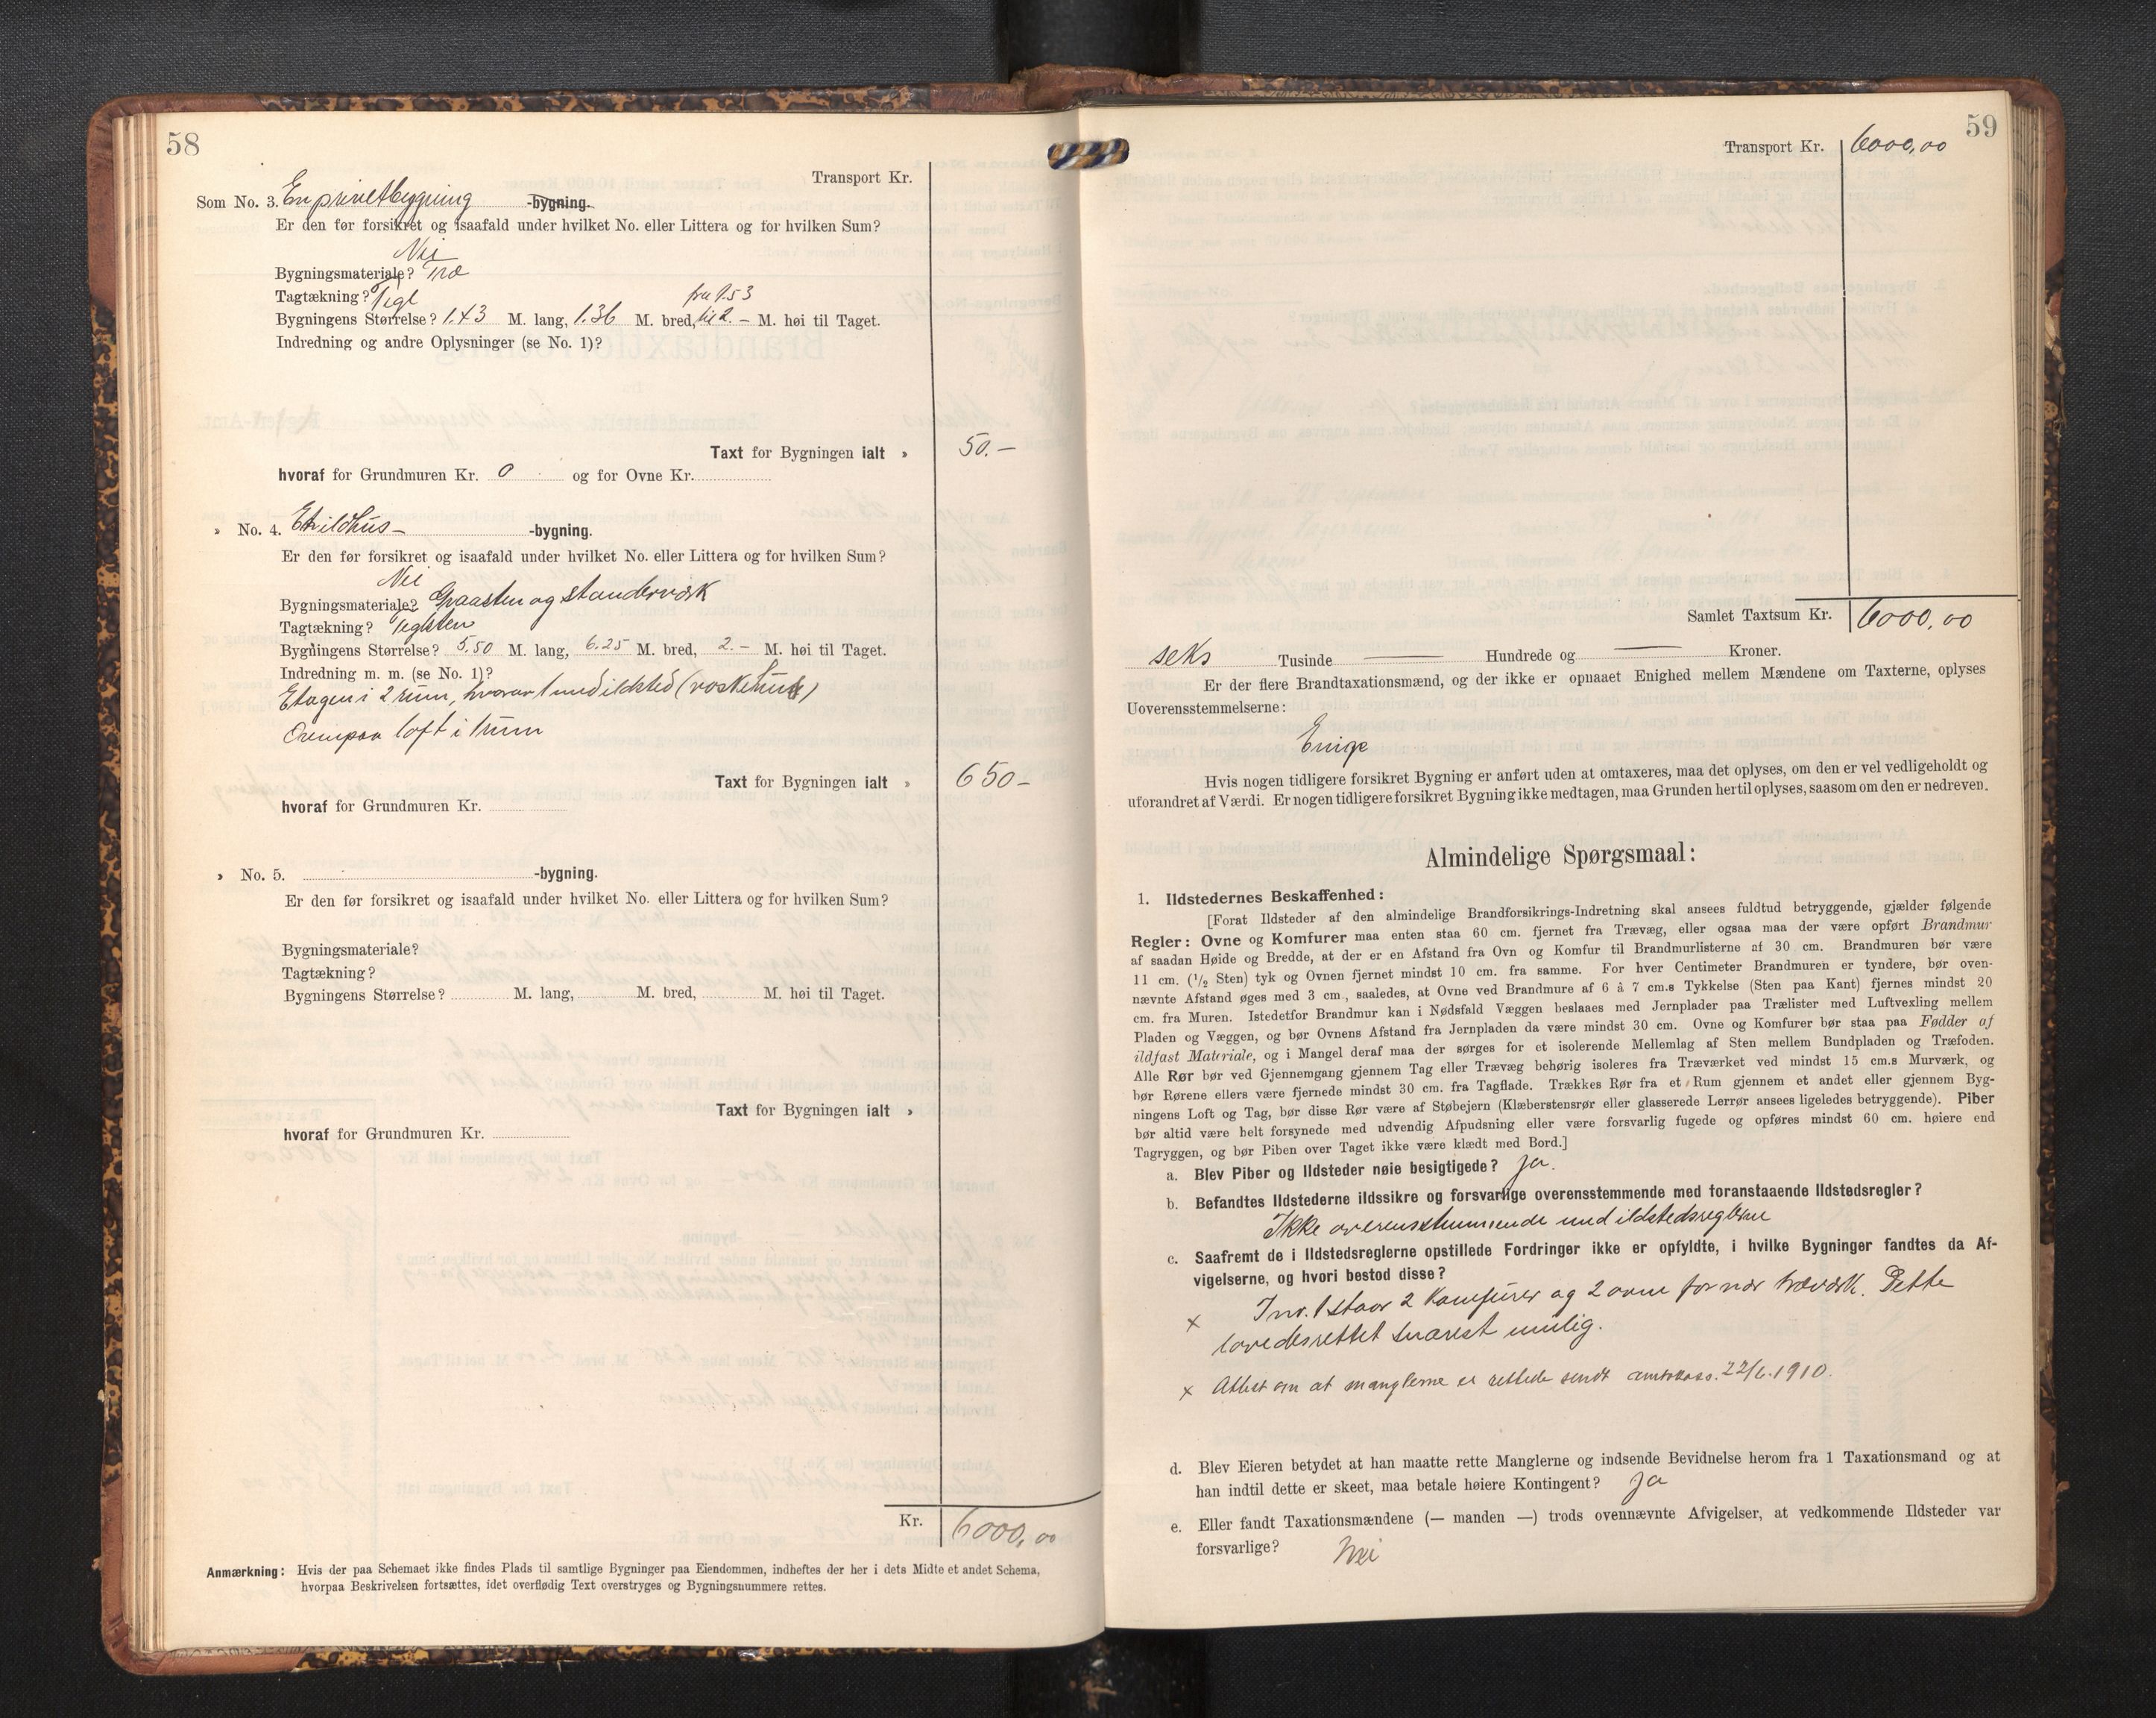 58
Transport Kr.
Som No. 3. En privetbygning -bygning.
Er den før forsikret og isaafald under hvilket No. eller Littera og for hvilken Sum?
Nei
Bygningsmateriale? Træ
Tagtækning? Tegl
fra 1.53
Bygningens Størrelse? 1.43 M. lang, 1.36 M. bred, til 2.- M. høi til Taget.
Indredning og andre Oplysninger (se No. 1)?
Taxt for Bygningen ialt » 50.-
hvoraf for Grundmuren Kr. 0 og for Ovne Kr.
» No. 4. Et ildhus- -bygning.
Er den før forsikret og isaafald under hvilket No. eller Littera og for hvilken Sum?
Nei
Bygningsmateriale? Graasten og standerværk
Tagtækning? Teglsten
Bygningens Størrelse? 5.50 M. lang, 6.25 M. bred, 2.- M. høi til Taget.
Indredning m. m. (se No. 1)?
Etagen i 2 rum, hvorav 1 med ildsted (vaskehus)
Ovenpaa loft i 1 rum
Taxt for Bygningen ialt » 650-
hvoraf for Grundmuren Kr.
» No. 5. -bygning.
Er den før forsikret og isaafald under hvilket No. eller Littera og for hvilken Sum?
Bygningsmateriale?
Tagtækning?
Bygningens Størrelse? M. lang, M. bred, M. høi til Taget.
Taxt for Bygningen ialt »
hvoraf for Grundmuren Kr.
Kr. 6000,00
Anmærkning: Hvis der paa Schemaet ikke findes Plads til samtlige Bygninger paa Eiendommen, indheftes der her i dets Midte et andet Schema,
hvorpaa Beskrivelsen fortsættes, idet overflødig Text overstryges og Bygningsnummere rettes.
59
Transport Kr. 6000,00
Samlet Taxtsum Kr. 6000,00
seks Tusinde — Hundrede og — Kroner.
Er der flere Brandtaxationsmænd, og der ikke er opnaaet Enighed mellem Mændene om Taxterne, oplyses
Uoverensstemmelserne:
Enige
Hvis nogen tidligere forsikret Bygning er anført uden at omtaxeres, maa det oplyses, om den er vel vedligeholdt og
uforandret af Værdi. Er nogen tidligere forsikret Bygning ikke medtagen, maa Grunden hertil oplyses, saasom om den er nedreven.
Almindelige Spørgsmaal:
1. Ildstedernes Beskaffenhed:
[Forat Ildsteder af den almindelige Brandforsikrings-Indretning skal ansees fuldtud betryggende, gjælder følgende
Regler: Ovne og Komfurer maa enten staa 60 cm. fjernet fra Trævæg, eller ogsaa maa der være opført Brandmur
af saadan Høide og Bredde, at der er en Afstand fra Ovn og Komfur til Brandmurlisterne af 30 cm. Brandmuren bør være
11 cm. (1/2 Sten) tyk og Ovnen fjernet mindst 10 cm. fra samme. For hver Centimeter Brandmuren er tyndere, bør oven-
nævnte Afstand øges med 3 cm., saaledes, at Ovne ved Brandmure af 6 à 7 cm.s Tykkelse (Sten paa Kant) fjernes mindst 20
cm. fra Muren. Istedetfor Brandmur kan i Nødsfald Væggen beslaaes med Jernplader paa Trælister med Luftvexling mellem
Pladen og Væggen, og bør Ovnens Afstand fra Jernpladen da være mindst 30 cm. Ovne og Komfurer bør staa paa Fødder af
ildfast Materiale, og i Mangel deraf maa der sørges for et isolerende Mellemlag af Sten mellem Bundpladen og Træfoden.
Alle Rør bør ved Gjennemgang gjennem Tag eller Trævæg behørig isoleres fra Træværket ved mindst 15 cm.s Murværk, og
bør Rørene ellers være fjernede mindst 30 cm. fra Tagflade. Trækkes Rør fra et Rum gjennem et andet eller gjennem Byg-
ningens Loft og Tag, bør disse Rør være af Støbejern (Klæberstensrør eller glasserede Lerrør ansees ligeledes betryggende). Piber
bør altid være helt forsynede med udvendig Afpudsning eller være forsvarlig fugede og opføres mindst 60 cm. høiere end
Tagryggen, og bør Piben over Taget ikke være klædt med Bord.]
a. Blev Piber og Ildsteder nøie besigtigede? Ja.
b. Befandtes Ildstederne ildssikre og forsvarlige overensstemmende med foranstaaende Ildstedsregler?
Ikke overensstemmende med ildstedsreglerne
c. Saafremt de i Ildstedsreglerne opstillede Fordringer ikke er opfyldte, i hvilke Bygninger fandtes da Af-
vigelserne, og hvori bestod disse?
x I nr. 1 staar 2 komfurer og 2 ovne for nær træværk. Dette
lovedes rettet snarest mulig.
x Attest om at manglerne er rettede sendt amtskass. 22/6. 1910.
d. Blev Eieren betydet at han maatte rette Manglerne og indsende Bevidnelse herom fra 1 Taxationsmand og at
han indtil dette er skeet, maa betale høiere Kontingent? Ja
e. Eller fandt Taxationsmændene (— manden —) trods ovennævnte Afvigelser, at vedkommende Ildsteder var
forsvarlige? Nei